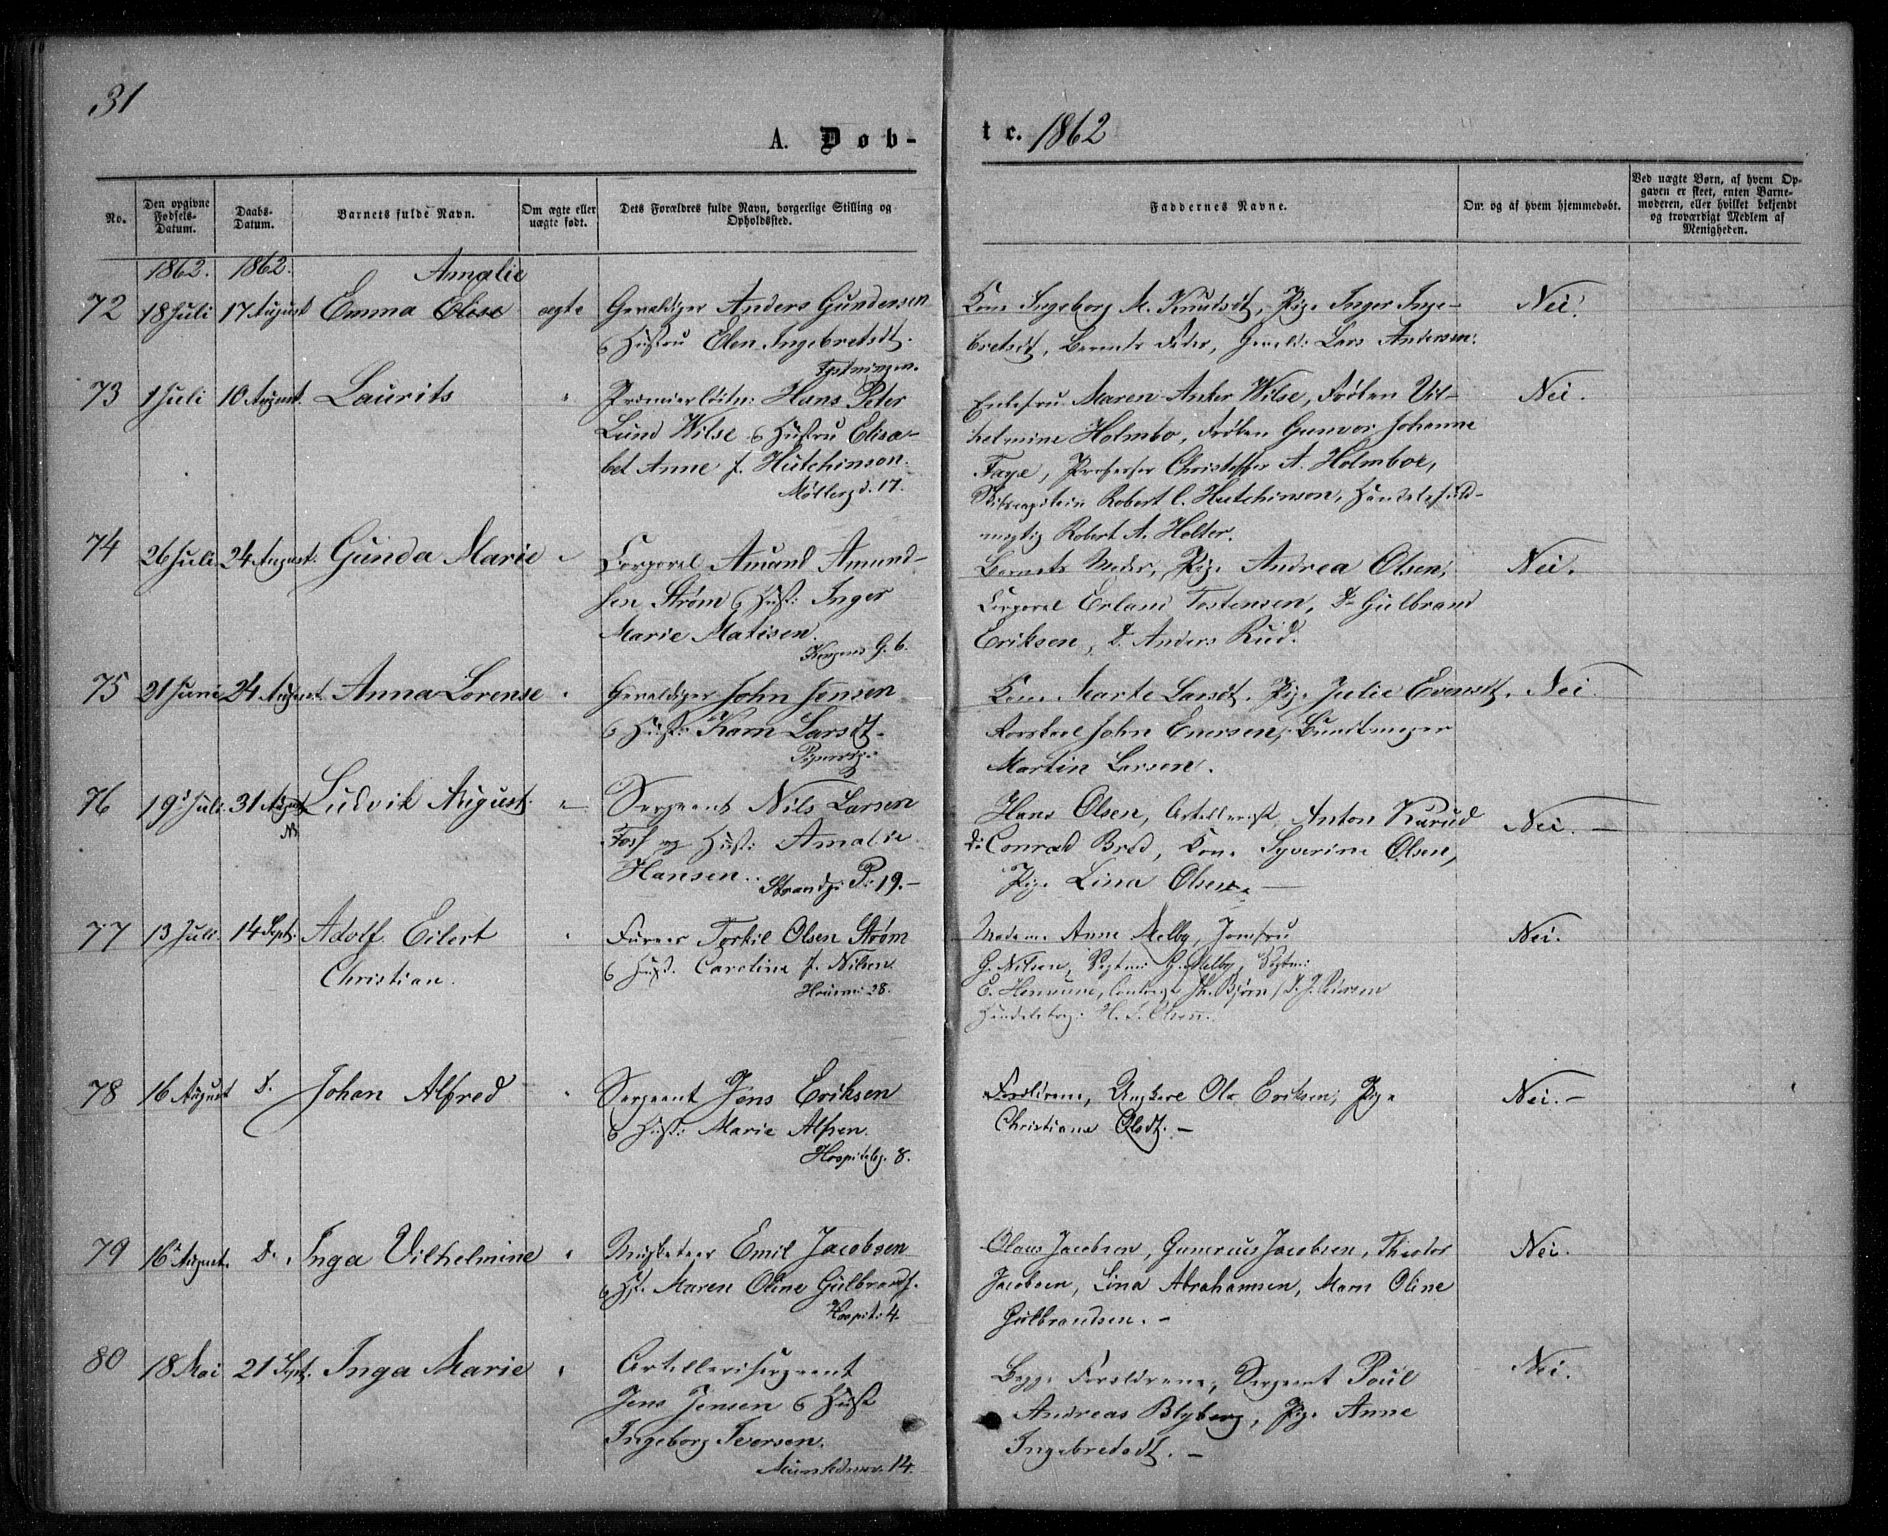 31
A. Døb-
te. 1862
No.
Den opgivne
Fødsels-
Datum.
Daabs-
Datum.
Barnets fulde Navn.
Om ægte eller
uægte født.
Dets Forældres fulde Navn, borgerlige Stilling og
Opholdssted.
Faddernes Navne.
Om og af hvem hjemmedøbt.
Ved uægte Børn, af hvem Op-
gaven er skeet, enten Barne-
moderen, eller hvilket bekjendt
og troværdigt Medlem af
Menigheden.
1862. 1862. Amalie
72 18 Juli 17 August Emma Olise ægte Gevaldiger Anders Gundersen
& Hustru Elen Ingebretsdt.
Fæstningen.
Kone Ingeborg M. Knudsdt, Pige Inger Inge-
bretsdt, Barnets Fader, Gevald: Lars Andersen.
Nei.
73 1 Juli 10 August Laurits " Premierløitn: Hans Peter
Lund Wilse & Hustru Elisa-
bet Anne f. Hutchinson.
Møllergd. 17.
Enkefru Maren Anker Wilse, Frøken Vil-
helmine Holmbo, Frøken Gunvor Johanne
Faye, Professor Christoffer A. Holmboe,
Robert C. Hutchinson, Handelsfuld-
mægtig Robert A. Holter.
Nei.
74 26 Juli 24 August. Gunda Marie " Corporal Amund Amund-
sen Strøm & Hust: Inger
Marie Matisen.
Kongens G. 6.
Barnets Moder, Pige Andrea Olsen,
Corporal Erland Tostensen, Do Gulbrand
Eriksen, D. Anders Rud.
Nei.
75 21 Juni 24 August Anna Lorense " Gevaldiger John Jonsen
& Hust: Karn Larsdt.
Pipervig:
Kone Marte Larsdt. Pige Julie Evensdt.
John Enersen, Bundtmager
Martin Larsen.
Nei.
76 19 Juli 31 August Ludvik August. " Sergeant Nils Larsen
Foss og Hust: Amalie
Hansen. Strandg. P: 19.-
Hans Olsen, Artillerist Anton Kurud
D: Conrad Bred, Kone Syverine Olsen,
Pige Lina Olsen.
Nei. -
77 13 Juli 14 Sept: Adolf Eilert
Christian.
" Furer Torkil Olsen Strøm
& Hust. Caroline f. Nilsen
28.
Madame Anne Melby, Jomfru
G. Nilsen, G. Melby,
E.
H. S. Olsen.
Nei.
78 16 August D. Johan Alfred " Sergeant Jens Eriksen
& Hust: Marie Alfsen.
Hospitalsg. 8.
Forældrene, Ungkarl Ole Eriksen, Pige
Christiane Olsdt. -
Nei. -
79 16 August. D. Inga Vilhelmine " Musketeer Emil Jacobsen
& H. Maren Oline Gulbrands.
Hospit: 4.
Olaus Jacobsen, Gunerius Jacobsen, Theodor
Jacobsen, Lina Abrahamsen, Marn Oline
Gulbrandsen. -
Nei.
80 18 Mai 21 Sept. Inga Marie " Artillerisergeant
Jens Jensen & Hust
Ingeborg Iversen.
14.
Begge Forældrene, Sergeant Poul
Andreas Blyberg, Pige Anne
Ingebretsdt. -
Nei.